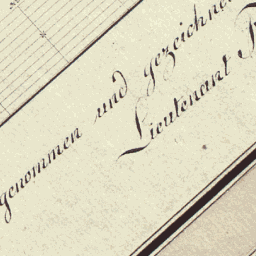 genommen und gezeichnet
Lieutenant